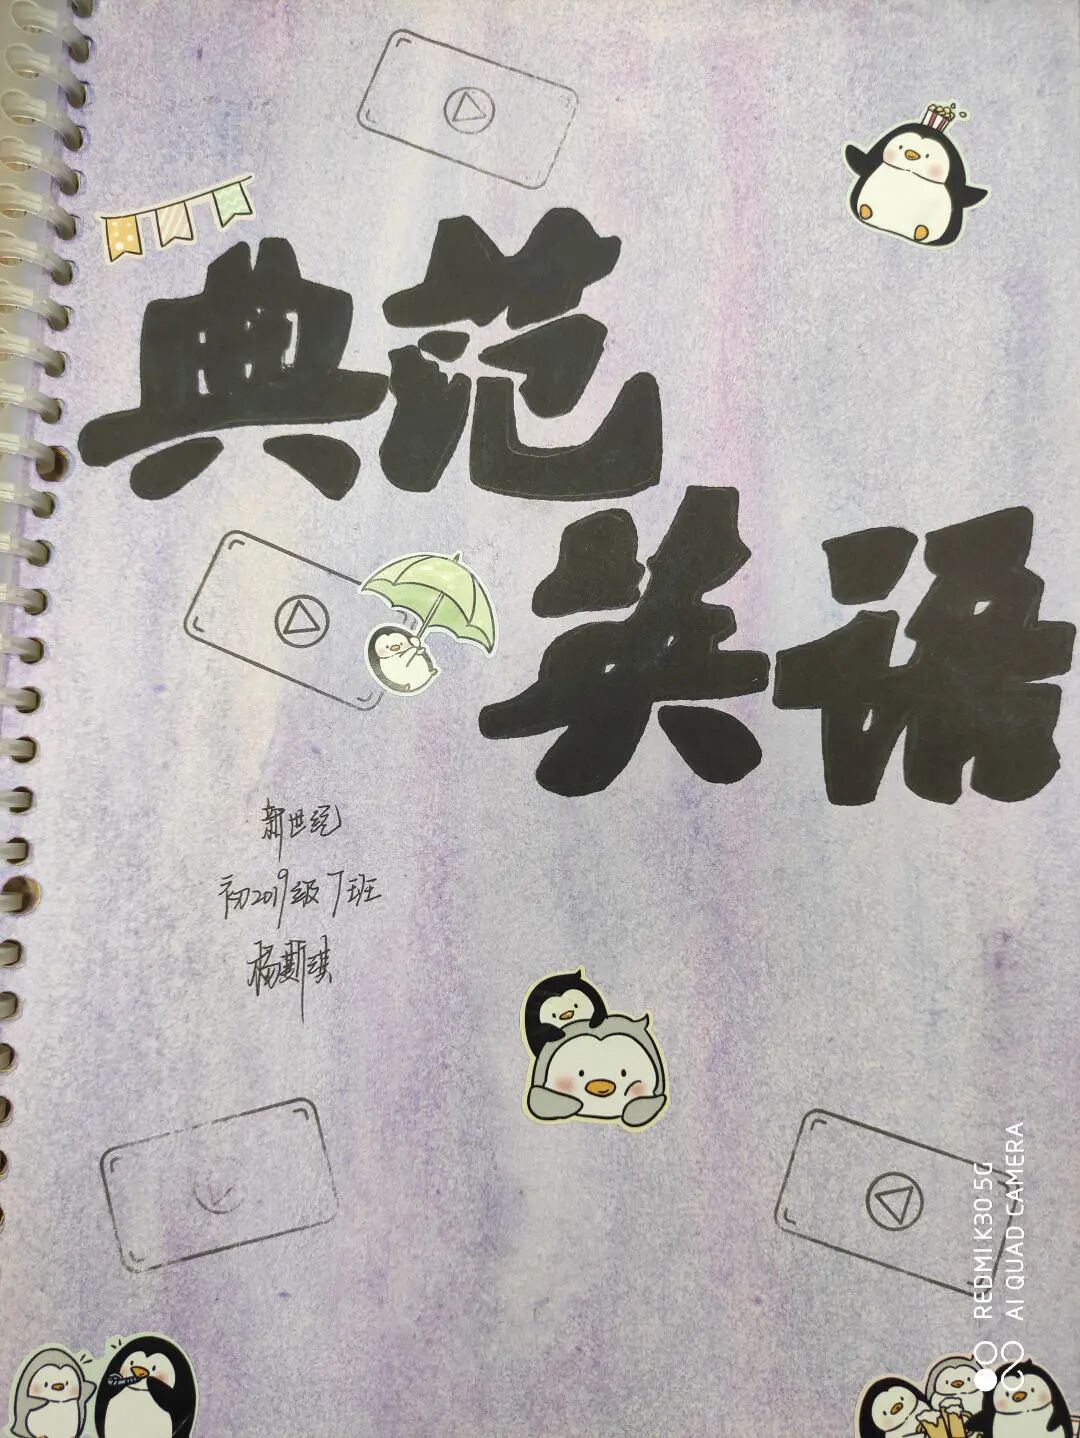 典范
英语
新世纪
初2019级7班
杨斯琪
REDMI K30 5G
AI QUAD CAMERA